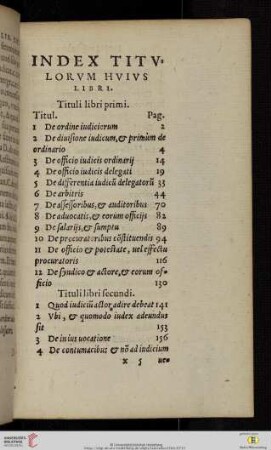 INDEX TITV-
LORVM HVIVS
LIBRI.
Tituli libri primi.
Titul. Pag.
1 De ordine iudiciorum 2
2 De diuisione iudicum, & primùm de
ordinario 4
3 De officio iudicis ordinarij 14
4 De officio iudicis delegati 19
5 De differentia iudicũ delegatorũ 33
6 De arbitris 44
7 De assessoribus, & auditoribus 70
8 De aduocatis, & eorum officijs 82
9 De salarijs, & sumptu 89
10 De procuratoribus cõstituendis 94
11 De officio & potestate, uel effectu
procuratoris 116
12 De syndico & actore, & eorum of-
ficio 130
Tituli libri secundi.
1 Quod iudiciũ actor adire debeat 141
2 Vbi, & quomodo iudex adeundus
sit 153
3 De in ius uocatione 156
4 De contumacibus & nõ ad iudicium
x 5 uen